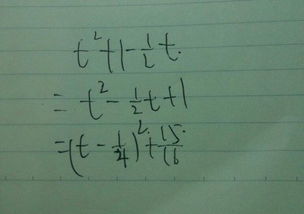 t²+1-½t.
= t²-½t+1
=(t-¼)²+15/16